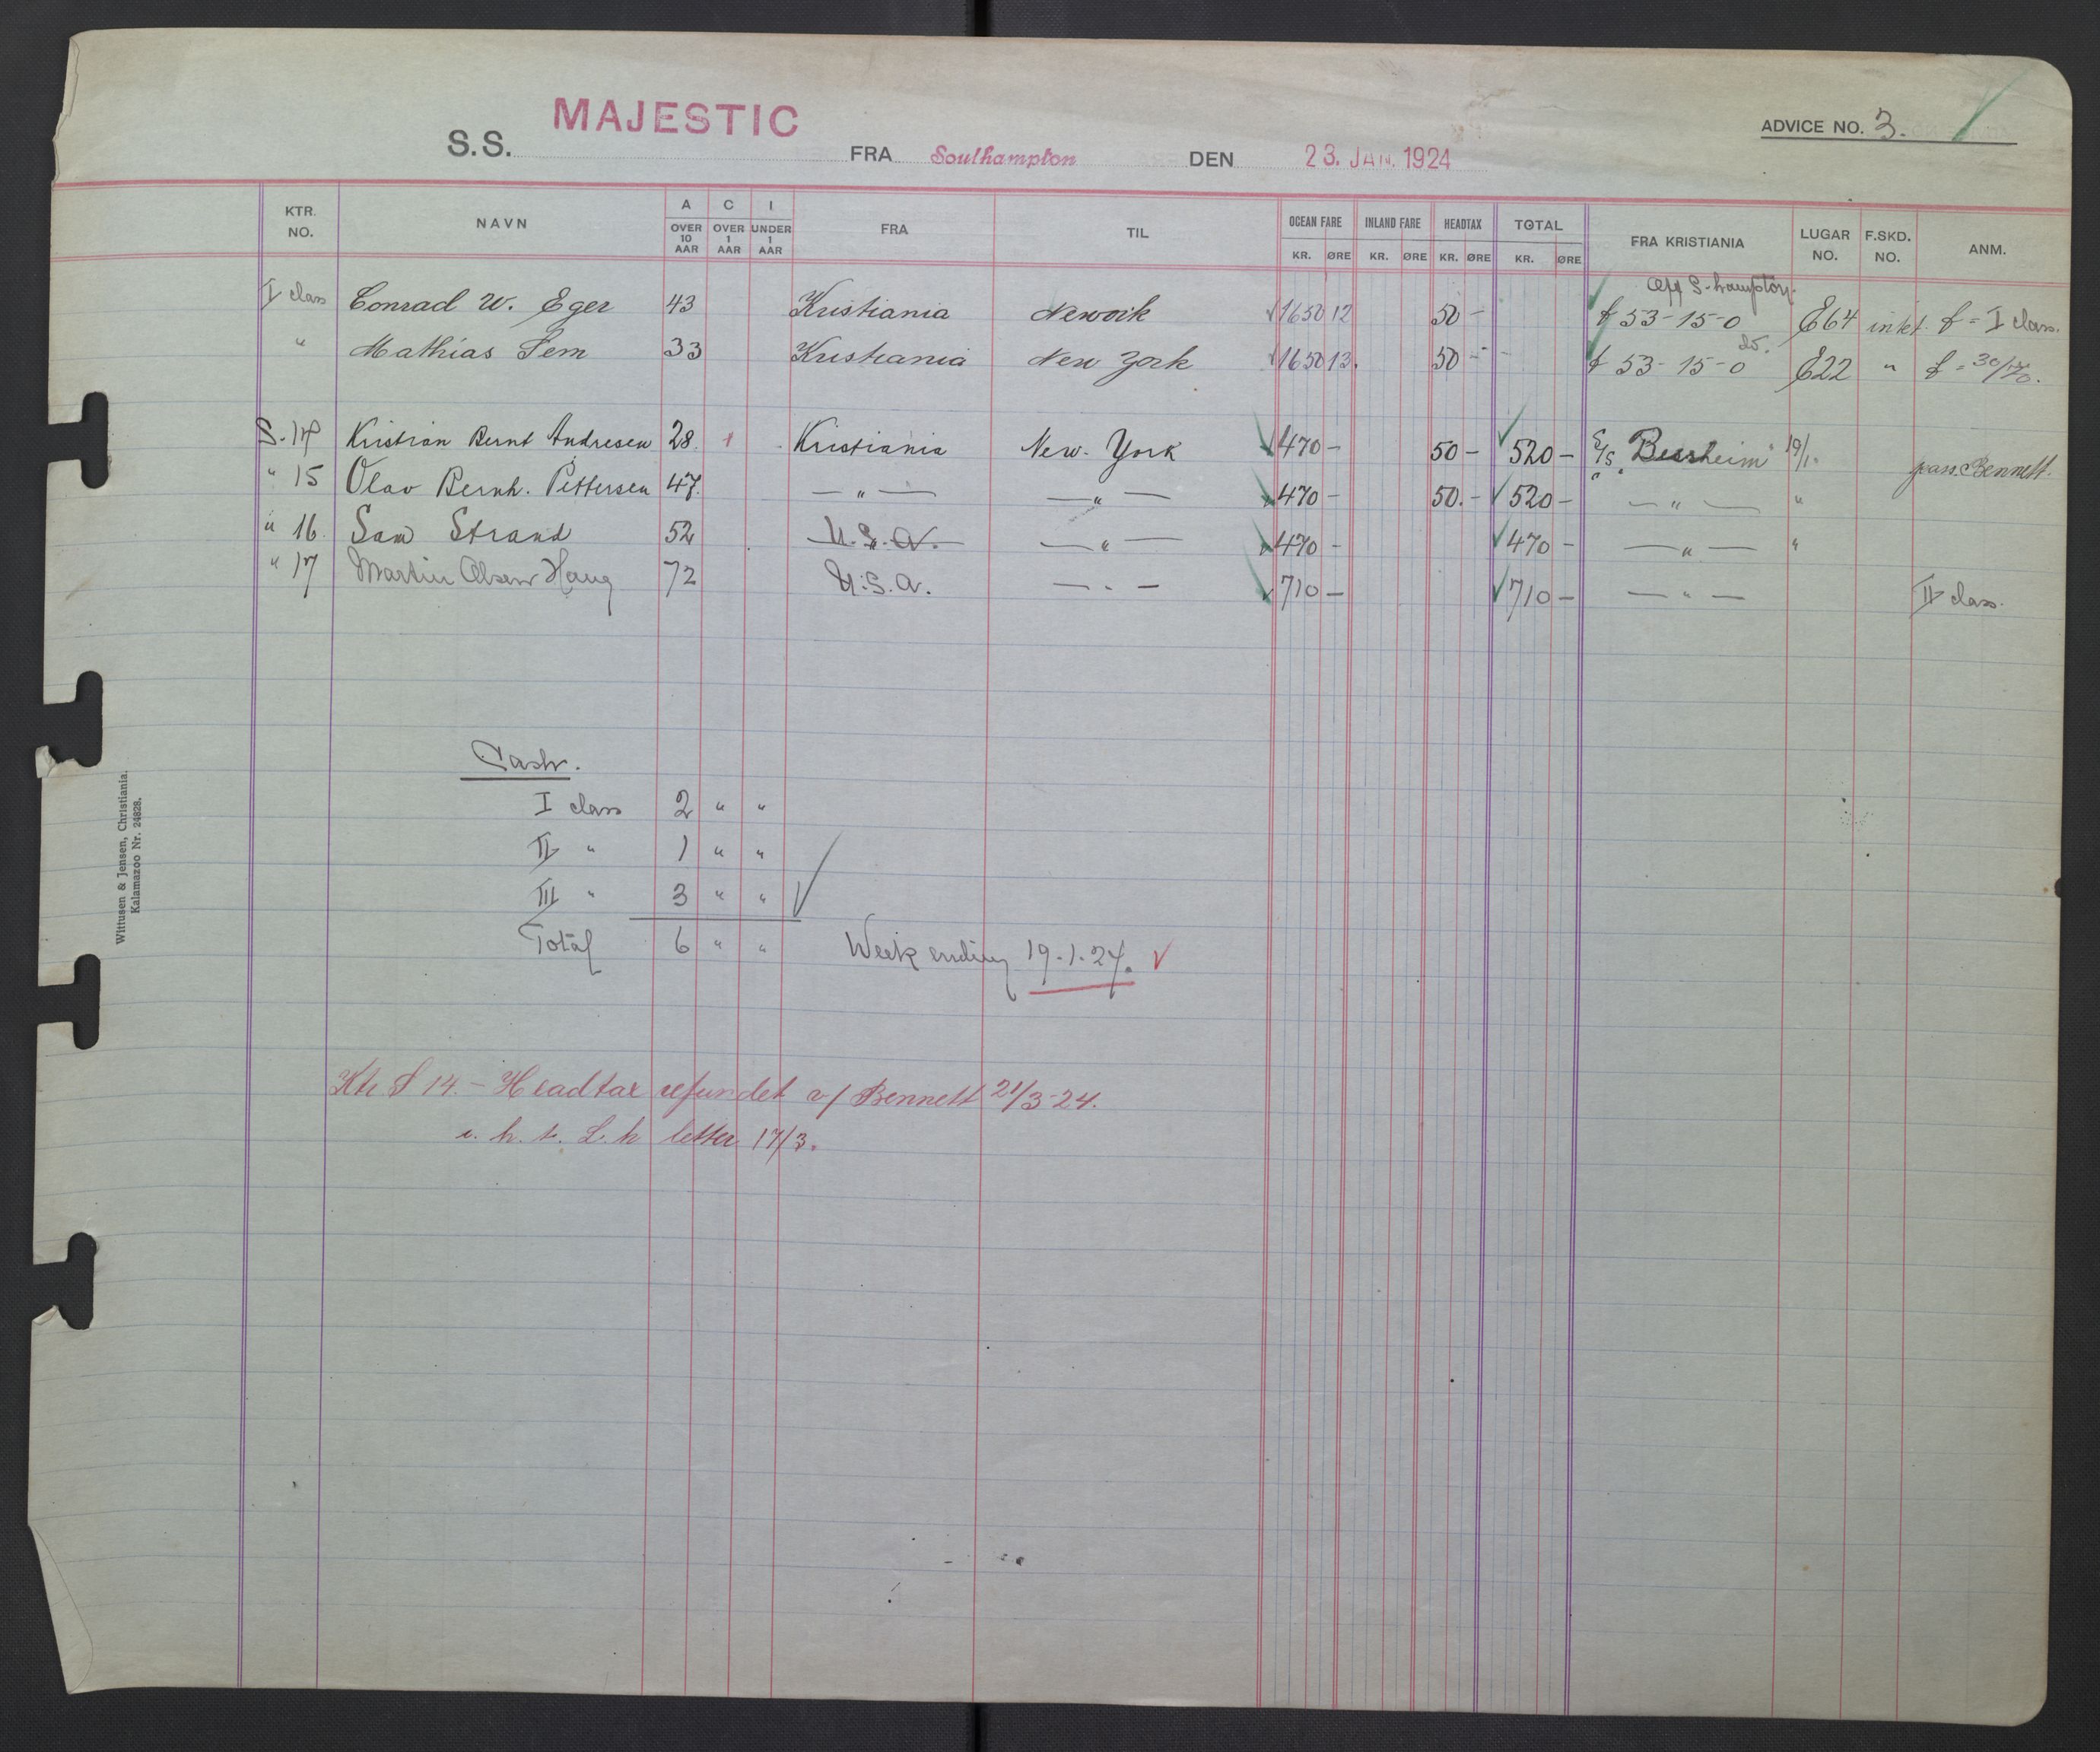 MAJESTIC
S.S. FRA Southampton DEN 23. JAN. 1924
ADVICE NO. 3.
KTR. NO. NAVN A OVER 10 AAR C OVER 1 AAR I UNDER 1 AAR FRA TIL OCEAN FARE KR. ØRE INLAND FARE KR. ØRE HEADTAX KR. ØRE TOTAL KR. ØRE FRA KRISTIANIA LUGAR NO. F.SKD. NO. ANM.
I class Conrad W. Eger 43 Kristiania Newyork 1650 12 50 - £ 53-15-0 E64 £ = I class.
" Mathias Sem 33 Kristiania New York 1650 13. 50 - £ 53-15-0 do. E22 "
S. 14 Kristian Bernt Andresen 28 1 Kristiania New-York 470 - 50 - 520 - S/S "Bessheim" 19/1. pass. Bennett.
" 15 Olav Bernh. Pettersen 47. — " — — " — 470 - 50. - 520 - — " — "
" 16. Sam Strand 52 U.S.A. — " — 470 - 470 - — " — "
" 17 Martin Olsen Haug 72 U.S.A. — " — 710 - 710 - — " — II class.
Cash.
I class 2 " "
II " 1 " "
III " 3 " "
Total 6 " " Week ending 19.1.24.
Ktr S 14. - Headtax refundet v/ Bennett 21/3-24.
letter 17/3.
Wittusen & Jensen, Christiania.
Kalamazoo Nr. 24828.